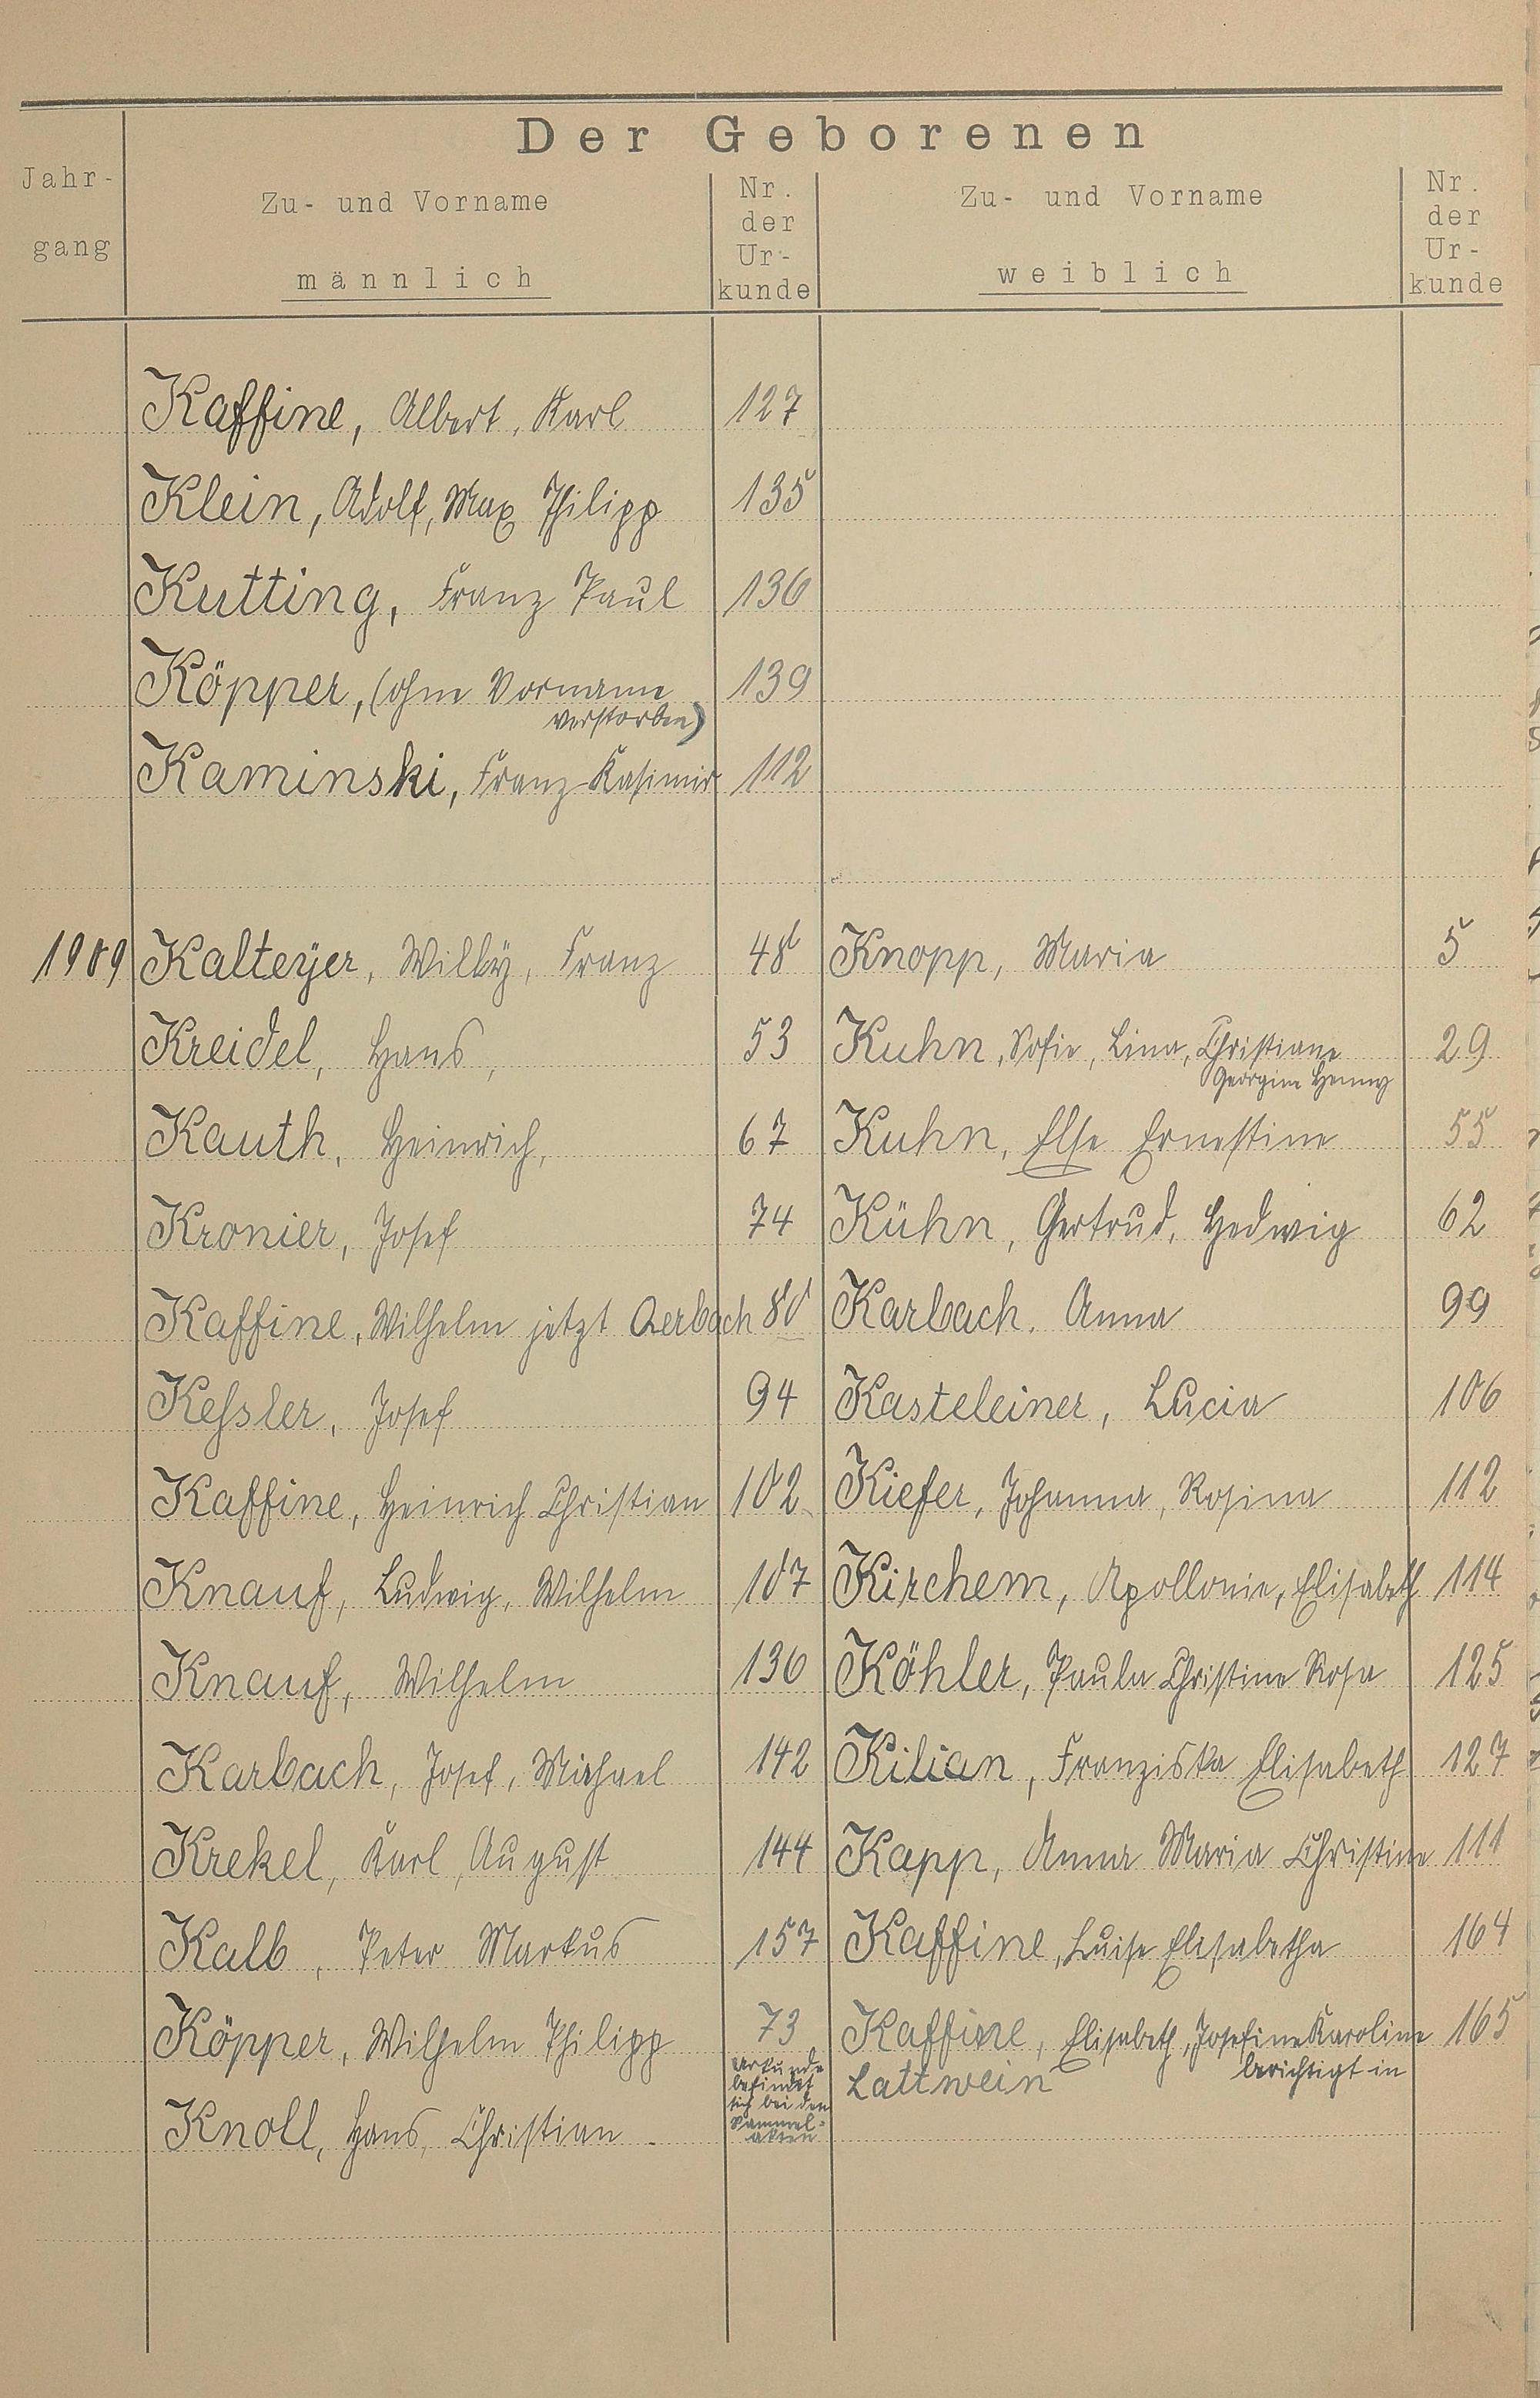 Der Geborenen
Jahr-
gang
Zu- und Vorname
männlich
Nr.
der
Ur-
kunde
Zu- und Vorname
weiblich
Nr.
der
Ur-
kunde
Kaffine, Albert, Karl 127
Klein, Adolf, Max Philipp 135
Kutting, Franz Paul 136
Köpper, (ohne Vorname 139
verstorben)
Kaminski, Franz-Kasimir 112
1909 Kalteyer, Willy, Franz 48 Knopp, Maria 5
Kreidel, Hans, 53 Kuhn, Sofie, Lina, Christiane 29
Georgine Henny
Kauth, Heinrich, 67 Kuhn, Else Ernestine 55
Kronier, Josef 74 Kühn, Gertrud, Hedwig 62
Kaffine, Wilhelm jetzt Aerbach 80 Karbach, Anna 99
Keſsler, Josef 94 Kasteleiner, Lucia 106
Kaffine, Heinrich Christian 102 Kiefer, Johanna, Rosina 112
Knauf, Ludwig, Wilhelm 107 Kirchem, Apollonie, Elisabeth 114
Knauf, Wilhelm 136 Köhler, Paula Christine Rosa 125
Karbach, Josef, Michael 142 Kilian, Franziska Elisabeth 127
Krekel, Karl, August 144 Kapp, Anna Maria Christine 111
Kalb, Peter Markus 157 Kaffine, Luise Elisabetha 164
Köpper, Wilhelm Philipp 73 Kaffine, Elisabeth, Josefine Karoline 165
berichtigt in
Lattwein
Knoll, Hans, Christian
Urkunde
befindet
sich bei den
Sammel-
akten